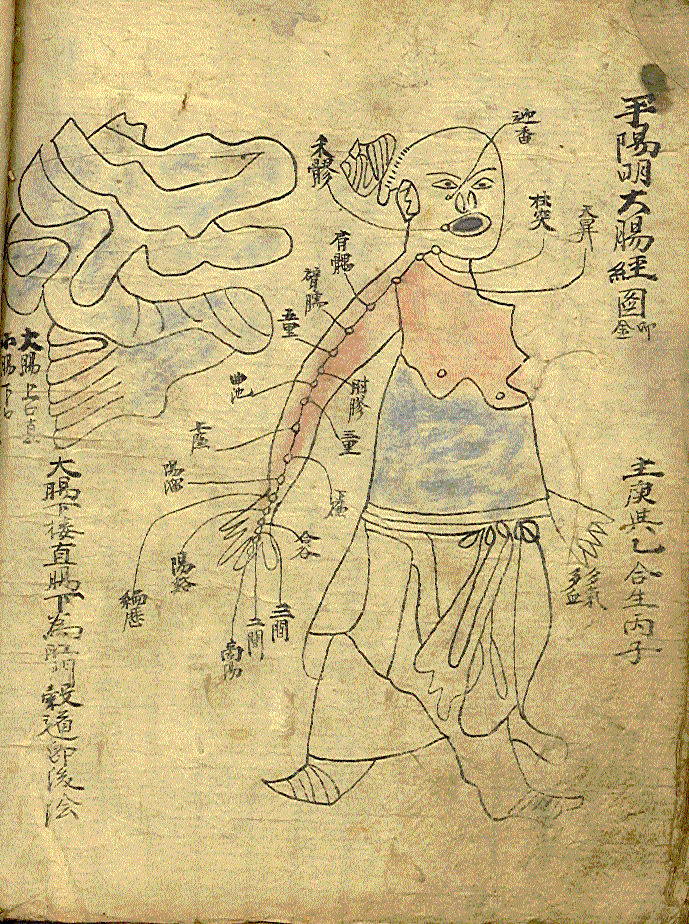 手陽明大腸經圖
卯
金
主庚其乙合生丙子
迎香
天鼎
扶突
禾髎
肩髃
臂臑
五里
曲池
肘髎
三里
下廉
上廉
陽溜
陽谿
偏歷
合谷
三間
二間
商陽
多氣
多血
大腸上口
小腸下口
大腸下接直腸下為肛門穀道即後陰